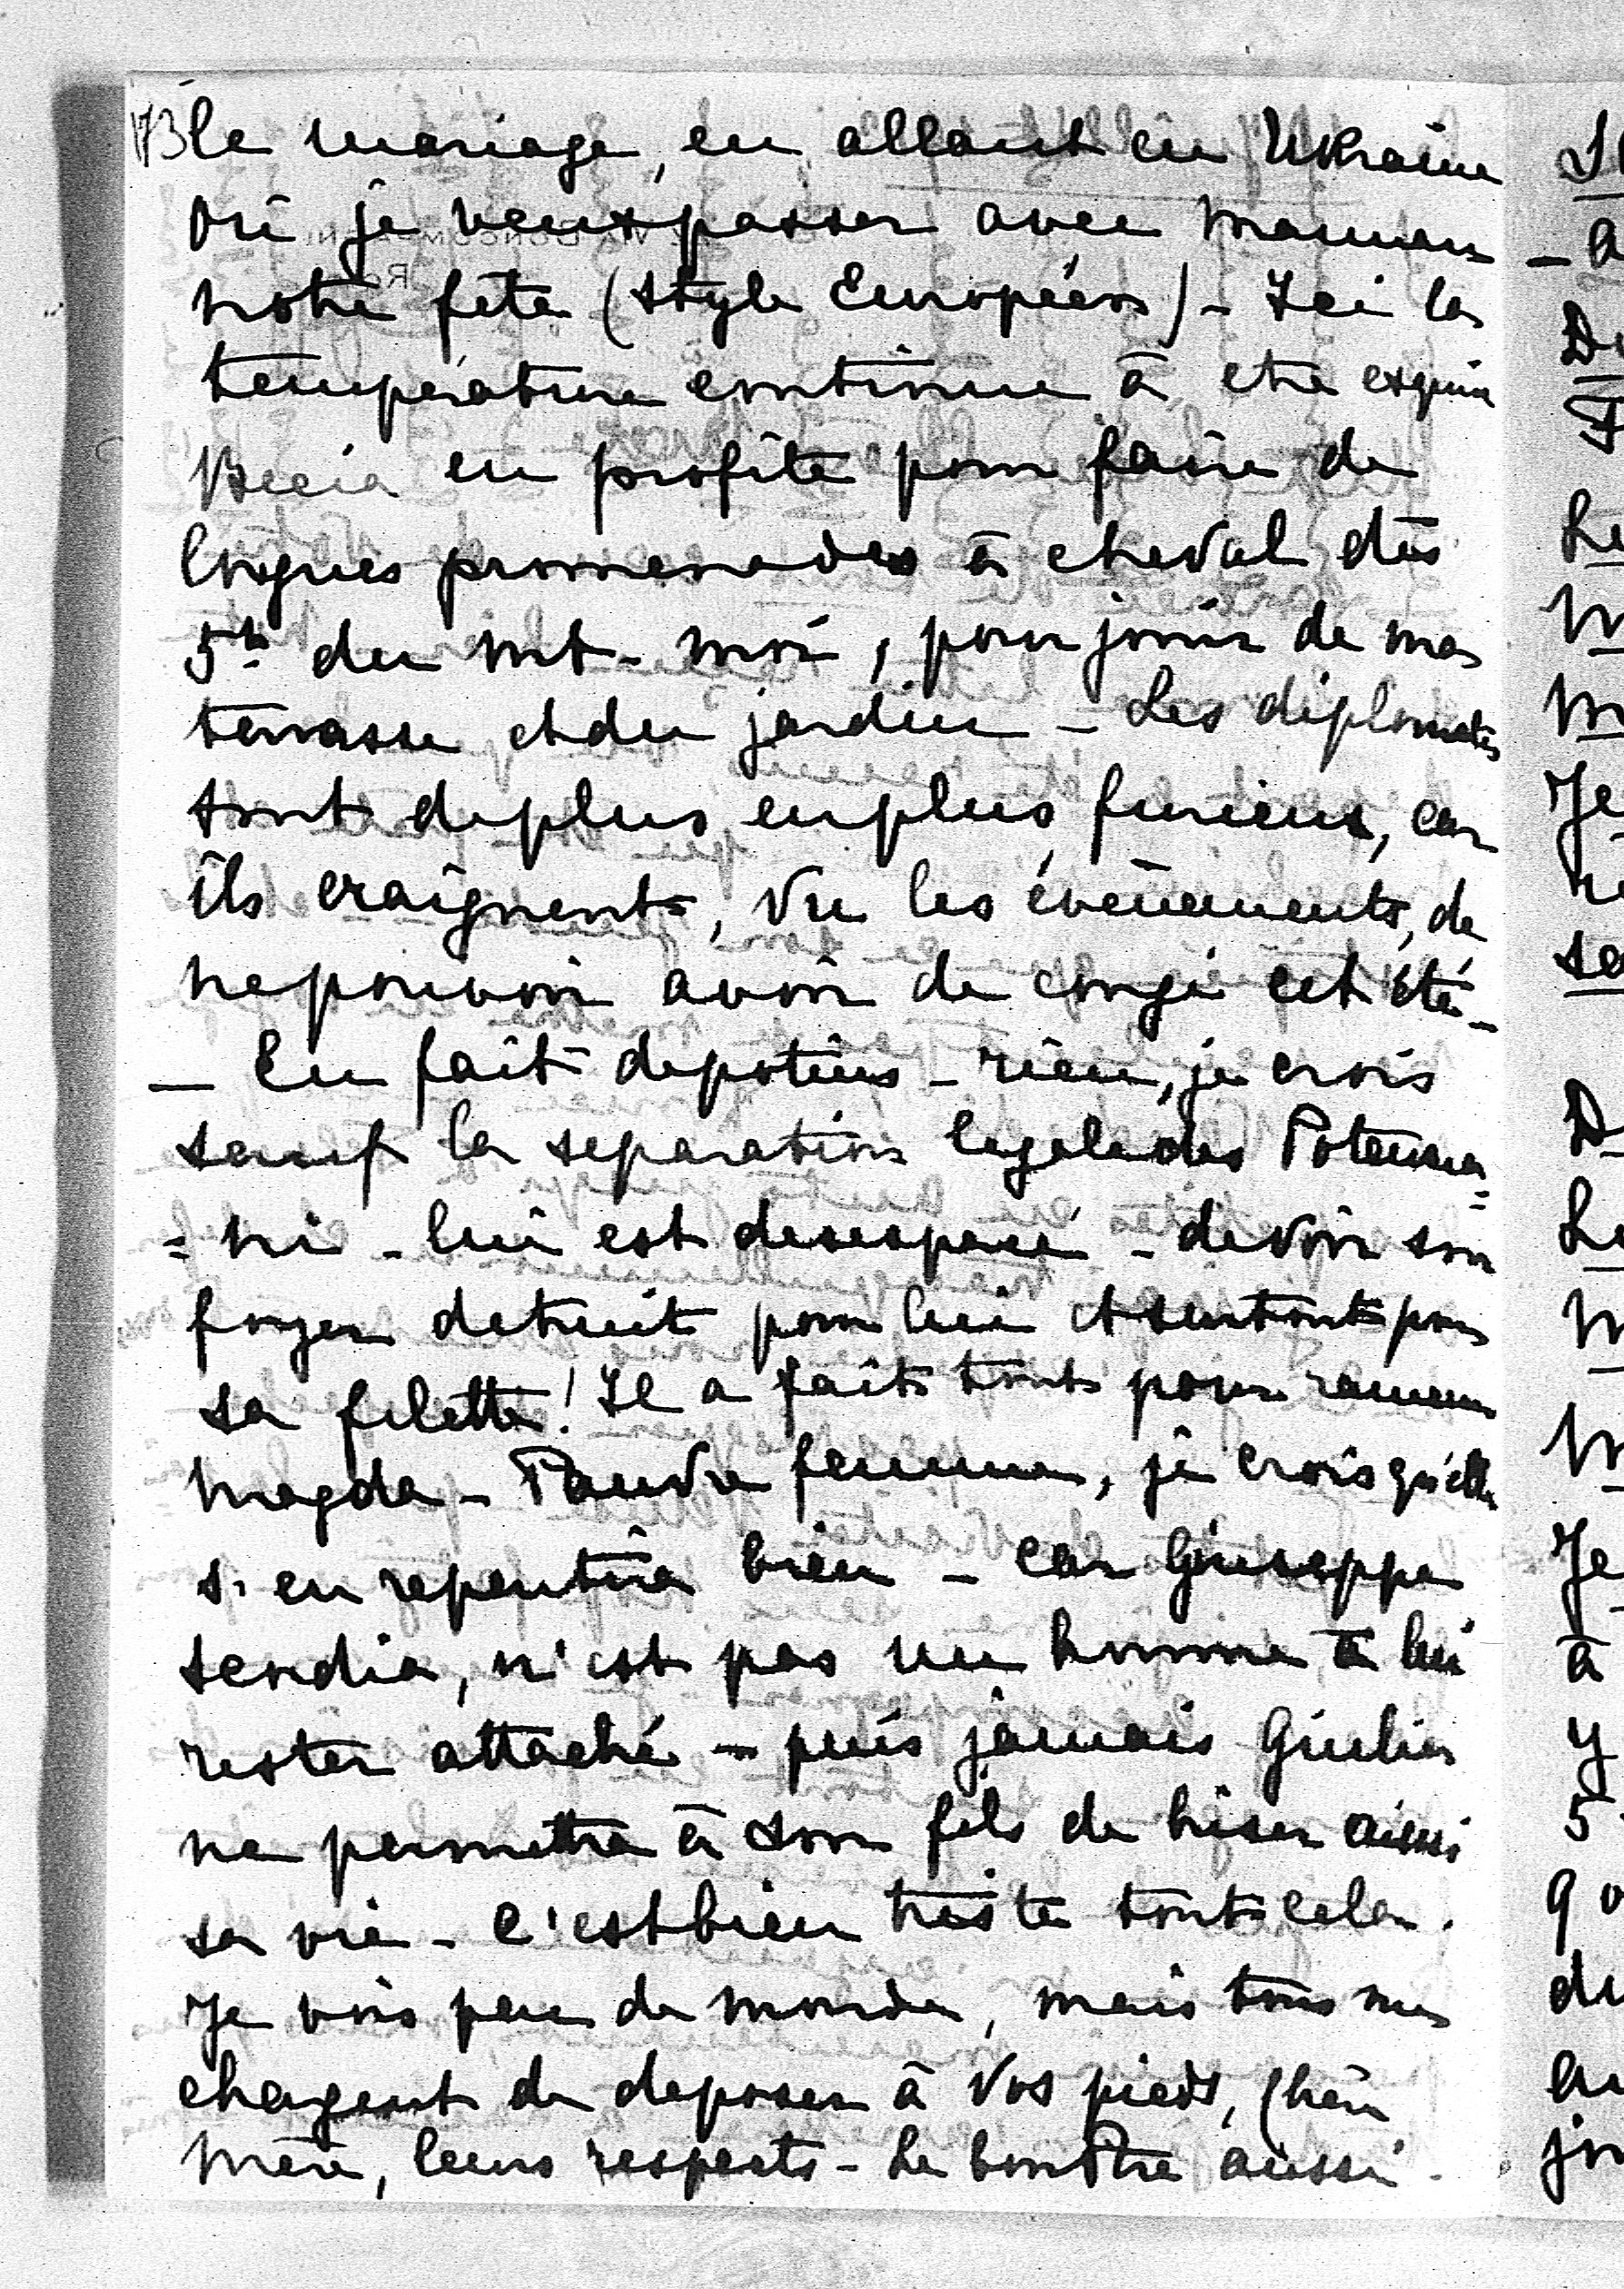 173 le mariage, en allant en Ukraine
où je veux passer avec Maman
notre fête (style Européen) - Ici la
température continue à etre exquise
Beecia en profite pour faire de
longues promenades à cheval dès
5h du mt - moi, pour jouir de ma
terrasse et du jardin - Les diplomates
sont de plus en plus furieux, car
ils craignent, vu les événements, de
ne pouvoir avoir de congé cet été -
- En fait de potins - rien, je crois
sauf la separation legale des Potenzia=
= ni - lui est desesperé - de voir son
foyer detruit pour lui et surtout pour
sa filette! Il a fait tout pour ramener
Magda - Pauvre femme, je crois qu'elle
s'en repentira bien - car Giuseppe
n'est pas un homme à lui
rester attaché - puis jamais Giulia
ne permettra à son fils de briser ainsi
sa vie - C'est bien triste tout cela.
Je vois peu de monde, mais tous me
chargent de deposer à Vos pieds, Chère
Mère, leurs respects - Le bon Père aussi.